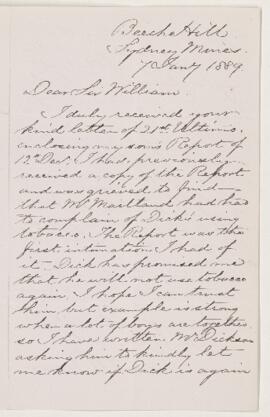 Beech Hill
Sydney Mines
7 Jany 1889.
Dear Sir William.
I duly received your
kind letter of 21st Ultimo,
enclosing my son's Report of
12th Dec. I had previously
received a copy of the Report
and was grieved to find
that Mr Maitland had had
to complain of Dick's using
tobacco. The Report was the
first intimation I had of
it. Dick has promised me
that he will not use tobacco
again. I hope I can trust
him but example is strong
when a lot of boys are together
so I have written Mr Dickson
asking him to kindly let
me know if Dick is again